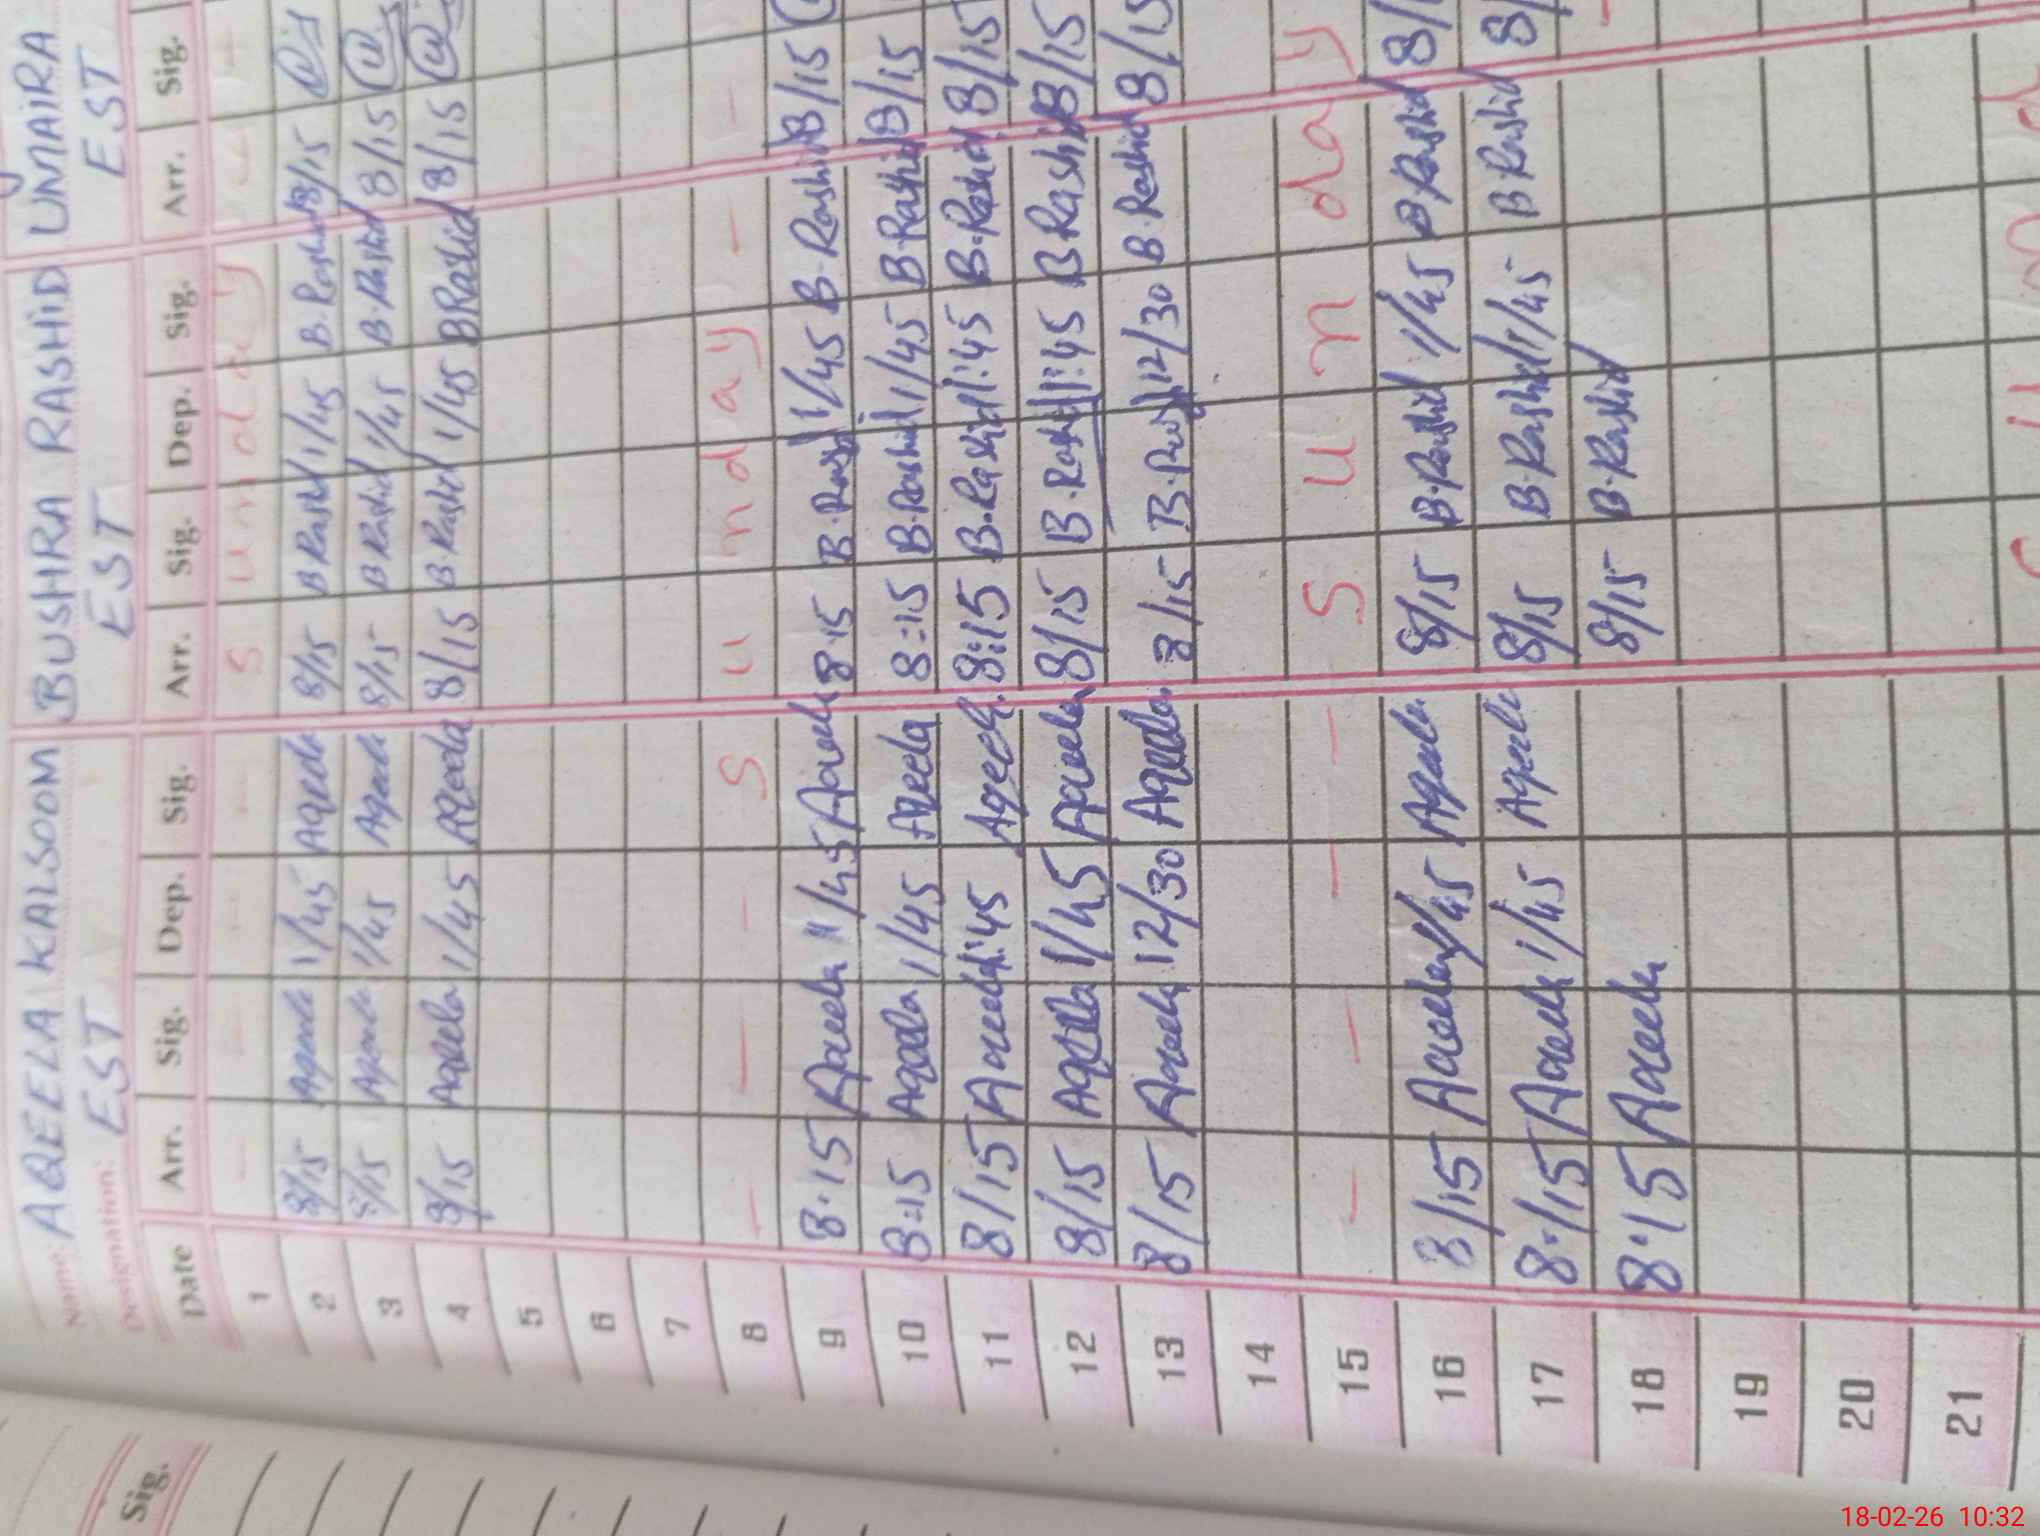 Name: AQEELA KALSOOM BUSHRA RASHID UMAIRA
Designation: EST EST EST
Date Arr. Sig. Dep. Sig. Arr. Sig. Dep. Sig. Arr. Sig.
1 - - - - S u n d a y - -
2 8/15 Aqeela 1/45 Aqeela 8/15 B Rashid 1/45 B. Rashid 8/15
3 8/15 Aqeela 1/45 Aqeela 8/15 B Rashid 1/45 B. Rashid 8/15
4 8/15 Aqeela 1/45 Aqeela 8/15 B. Rashid 1/45 B Rashid 8/15
5
6
7
8 - - - S u n d a y - -
9 8:15 Aqeela 1/45 Aqeela 8:15 B. Rashid 1/45 B. Rashid 8/15
10 8:15 Aqeela 1/45 Aqeela 8:15 B. Rashid 1/45 B. Rashid 8/15
11 8/15 Aqeela 1:45 Aqeela 8:15 B. Rashid 1:45 B. Rashid 8/15
12 8/15 Aqeela 1/45 Aqeela 8/15 B. Rashid 1:45 B Rashid 8/15
13 8/15 Aqeela 12/30 Aqeela 8/15 B. Rashid 12/30 B. Rashid 8/15
14
15 - - - - S u n d a y
16 8/15 Aqeela 1/45 Aqeela 8/15 B. Rashid 1/45 B Rashid
17 8:/15 Aqeela 1/45 Aqeela 8/15 B. Rashid 1/45 B Rashid
18 8:15 Aqeela 8/15 B. Rashid
19
20
21
Sig.
18-02-26 10:32